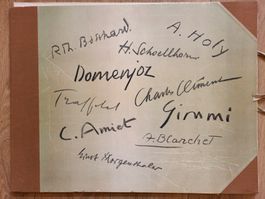 A. Holy
Rth Bernhard.
H. Schoellhorn
Domenjoz
Traffelet
Charles Clément
Gimmi
C. Amiet
A. Blanchet
Ernst Morgenthaler